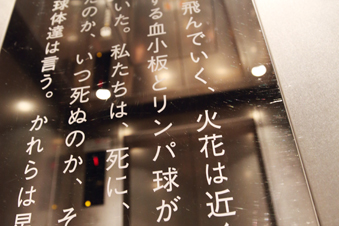 飛んでいく、火花は近
する血小板とリンパ球が
いた。私たちは、死に、
たのか、いつ死ぬのか、そ
球体達は言う。かれらは早